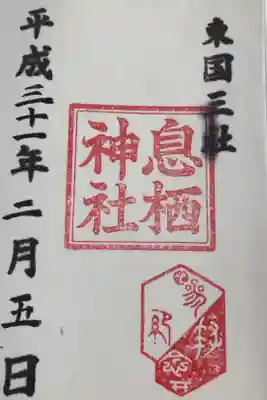 東国三社
息栖
神社
平成三十一年二月五日